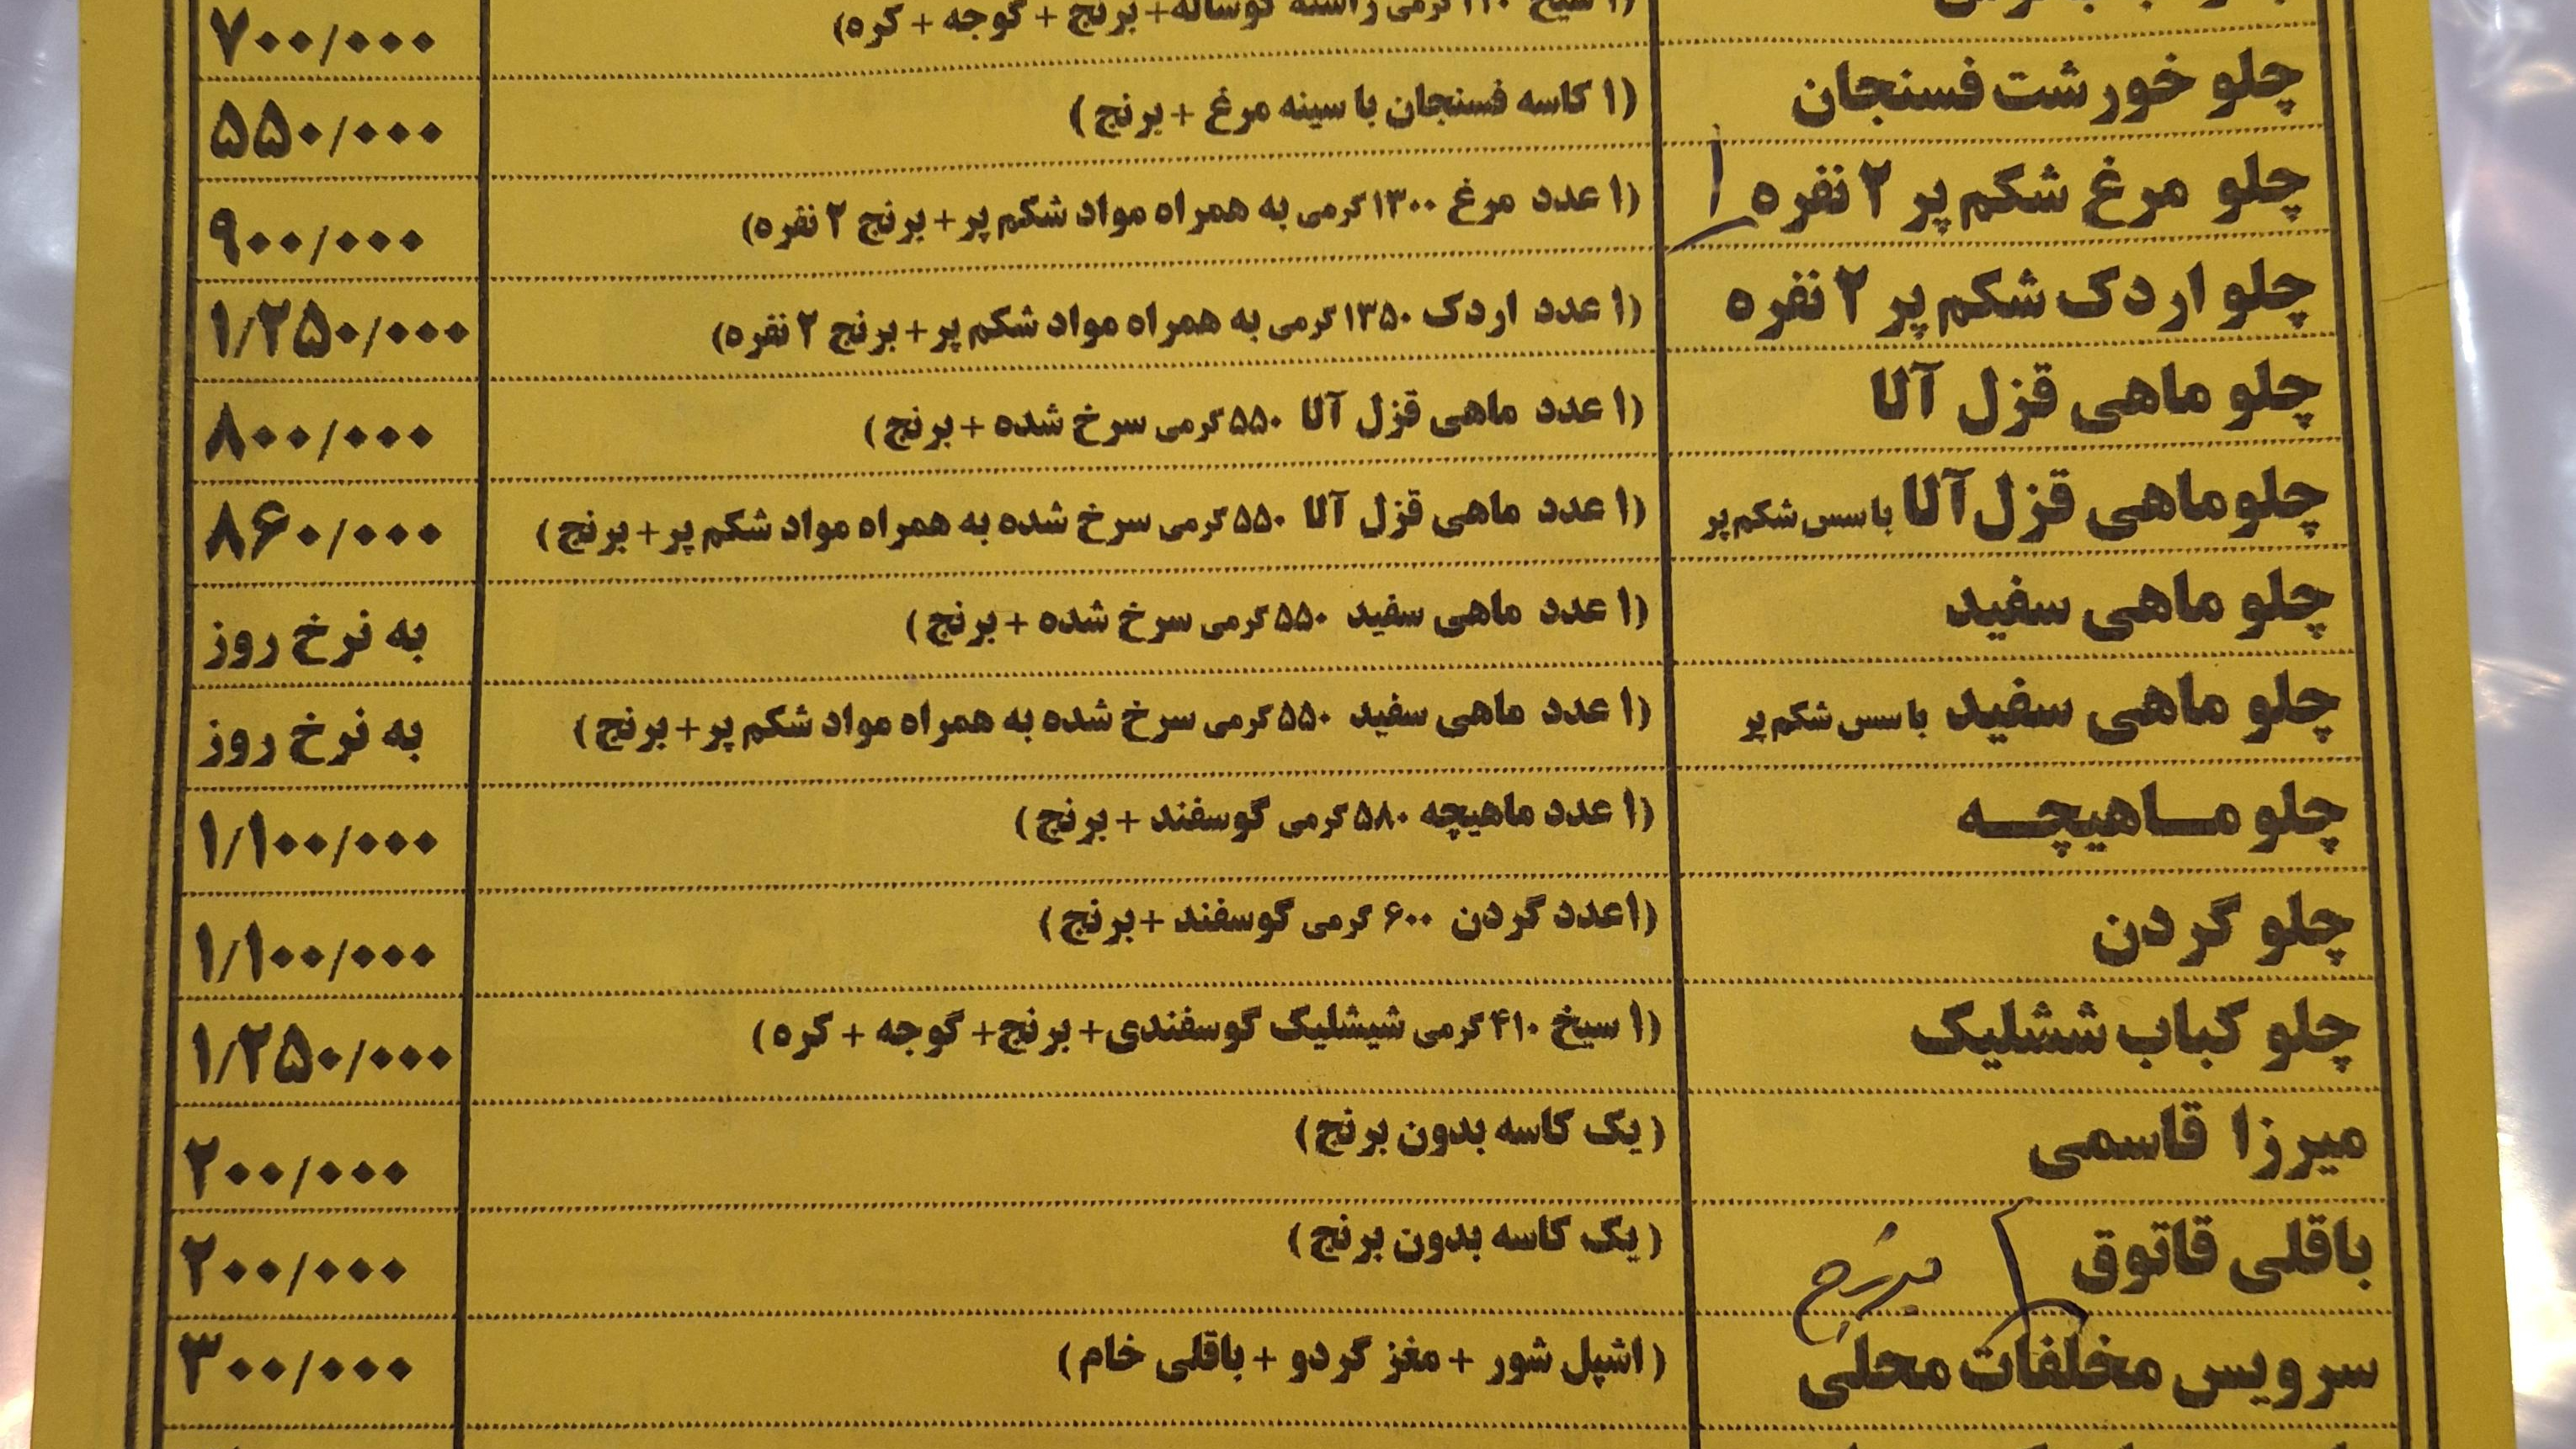 ۷۰۰/۰۰۰
چلو خورشت فسنجان (۱ کاسه فسنجان با سینه مرغ + برنج) ۵۵۰/۰۰۰
چلو مرغ شکم پر ۲ نفره (۱ عدد مرغ ۱۳۰۰ گرمی به همراه مواد شکم پر + برنج ۲ نفره) ۹۰۰/۰۰۰
چلو اردک شکم پر ۲ نفره (۱ عدد اردک ۱۳۵۰ گرمی به همراه مواد شکم پر + برنج ۲ نفره) ۱/۲۵۰/۰۰۰
چلو ماهی قزل آلا (۱ عدد ماهی قزل آلا ۵۵۰ گرمی سرخ شده + برنج) ۸۰۰/۰۰۰
چلو ماهی قزل آلا با سس شکم پر (۱ عدد ماهی قزل آلا ۵۵۰ گرمی سرخ شده به همراه مواد شکم پر + برنج) ۸۶۰/۰۰۰
چلو ماهی سفید (۱ عدد ماهی سفید ۵۵۰ گرمی سرخ شده + برنج) به نرخ روز
چلو ماهی سفید با سس شکم پر (۱ عدد ماهی سفید ۵۵۰ گرمی سرخ شده به همراه مواد شکم پر + برنج) به نرخ روز
چلو مــاهیچــه (۱ عدد ماهیچه ۵۸۰ گرمی گوسفند + برنج) ۱/۱۰۰/۰۰۰
چلو گردن (۱ عدد گردن ۶۰۰ گرمی گوسفند + برنج) ۱/۱۰۰/۰۰۰
چلو کباب ششلیک (۱ سیخ ۴۱۰ گرمی شیشلیک گوسفندی + برنج + گوجه + کره) ۱/۲۵۰/۰۰۰
میرزا قاسمی (یک کاسه بدون برنج) ۲۰۰/۰۰۰
باقلی قاتوق (یک کاسه بدون برنج) ۲۰۰/۰۰۰
سرویس مخلفات محلی (اشپل شور + مغز گردو + باقلی خام) ۳۰۰/۰۰۰